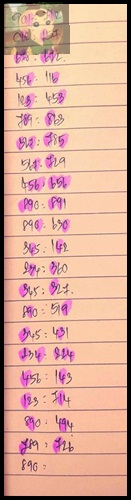 456 : 116
123 : 453
789 : 863
567 : 729
456 : 656
890 : 891
890 : 630
345 : 142
234 : 360
345 : 327.
890 : 519
345 : 431
234 : 224
456 : 143
123 : 714
890 : 494
789 : 726
890 :